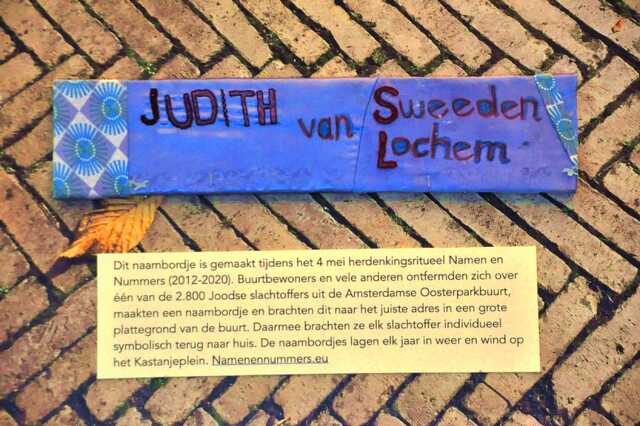 JUDITH van Sweeden
Lochem
Dit naambordje is gemaakt tijdens het 4 mei herdenkingsritueel Namen en
Nummers (2012-2020). Buurtbewoners en vele anderen ontfermden zich over
één van de 2.800 Joodse slachtoffers uit de Amsterdamse Oosterparkbuurt,
maakten een naambordje en brachten dit naar het juiste adres in een grote
plattegrond van de buurt. Daarmee brachten ze elk slachtoffer individueel
symbolisch terug naar huis. De naambordjes lagen elk jaar in weer en wind op
het Kastanjeplein. Namenennummers.eu